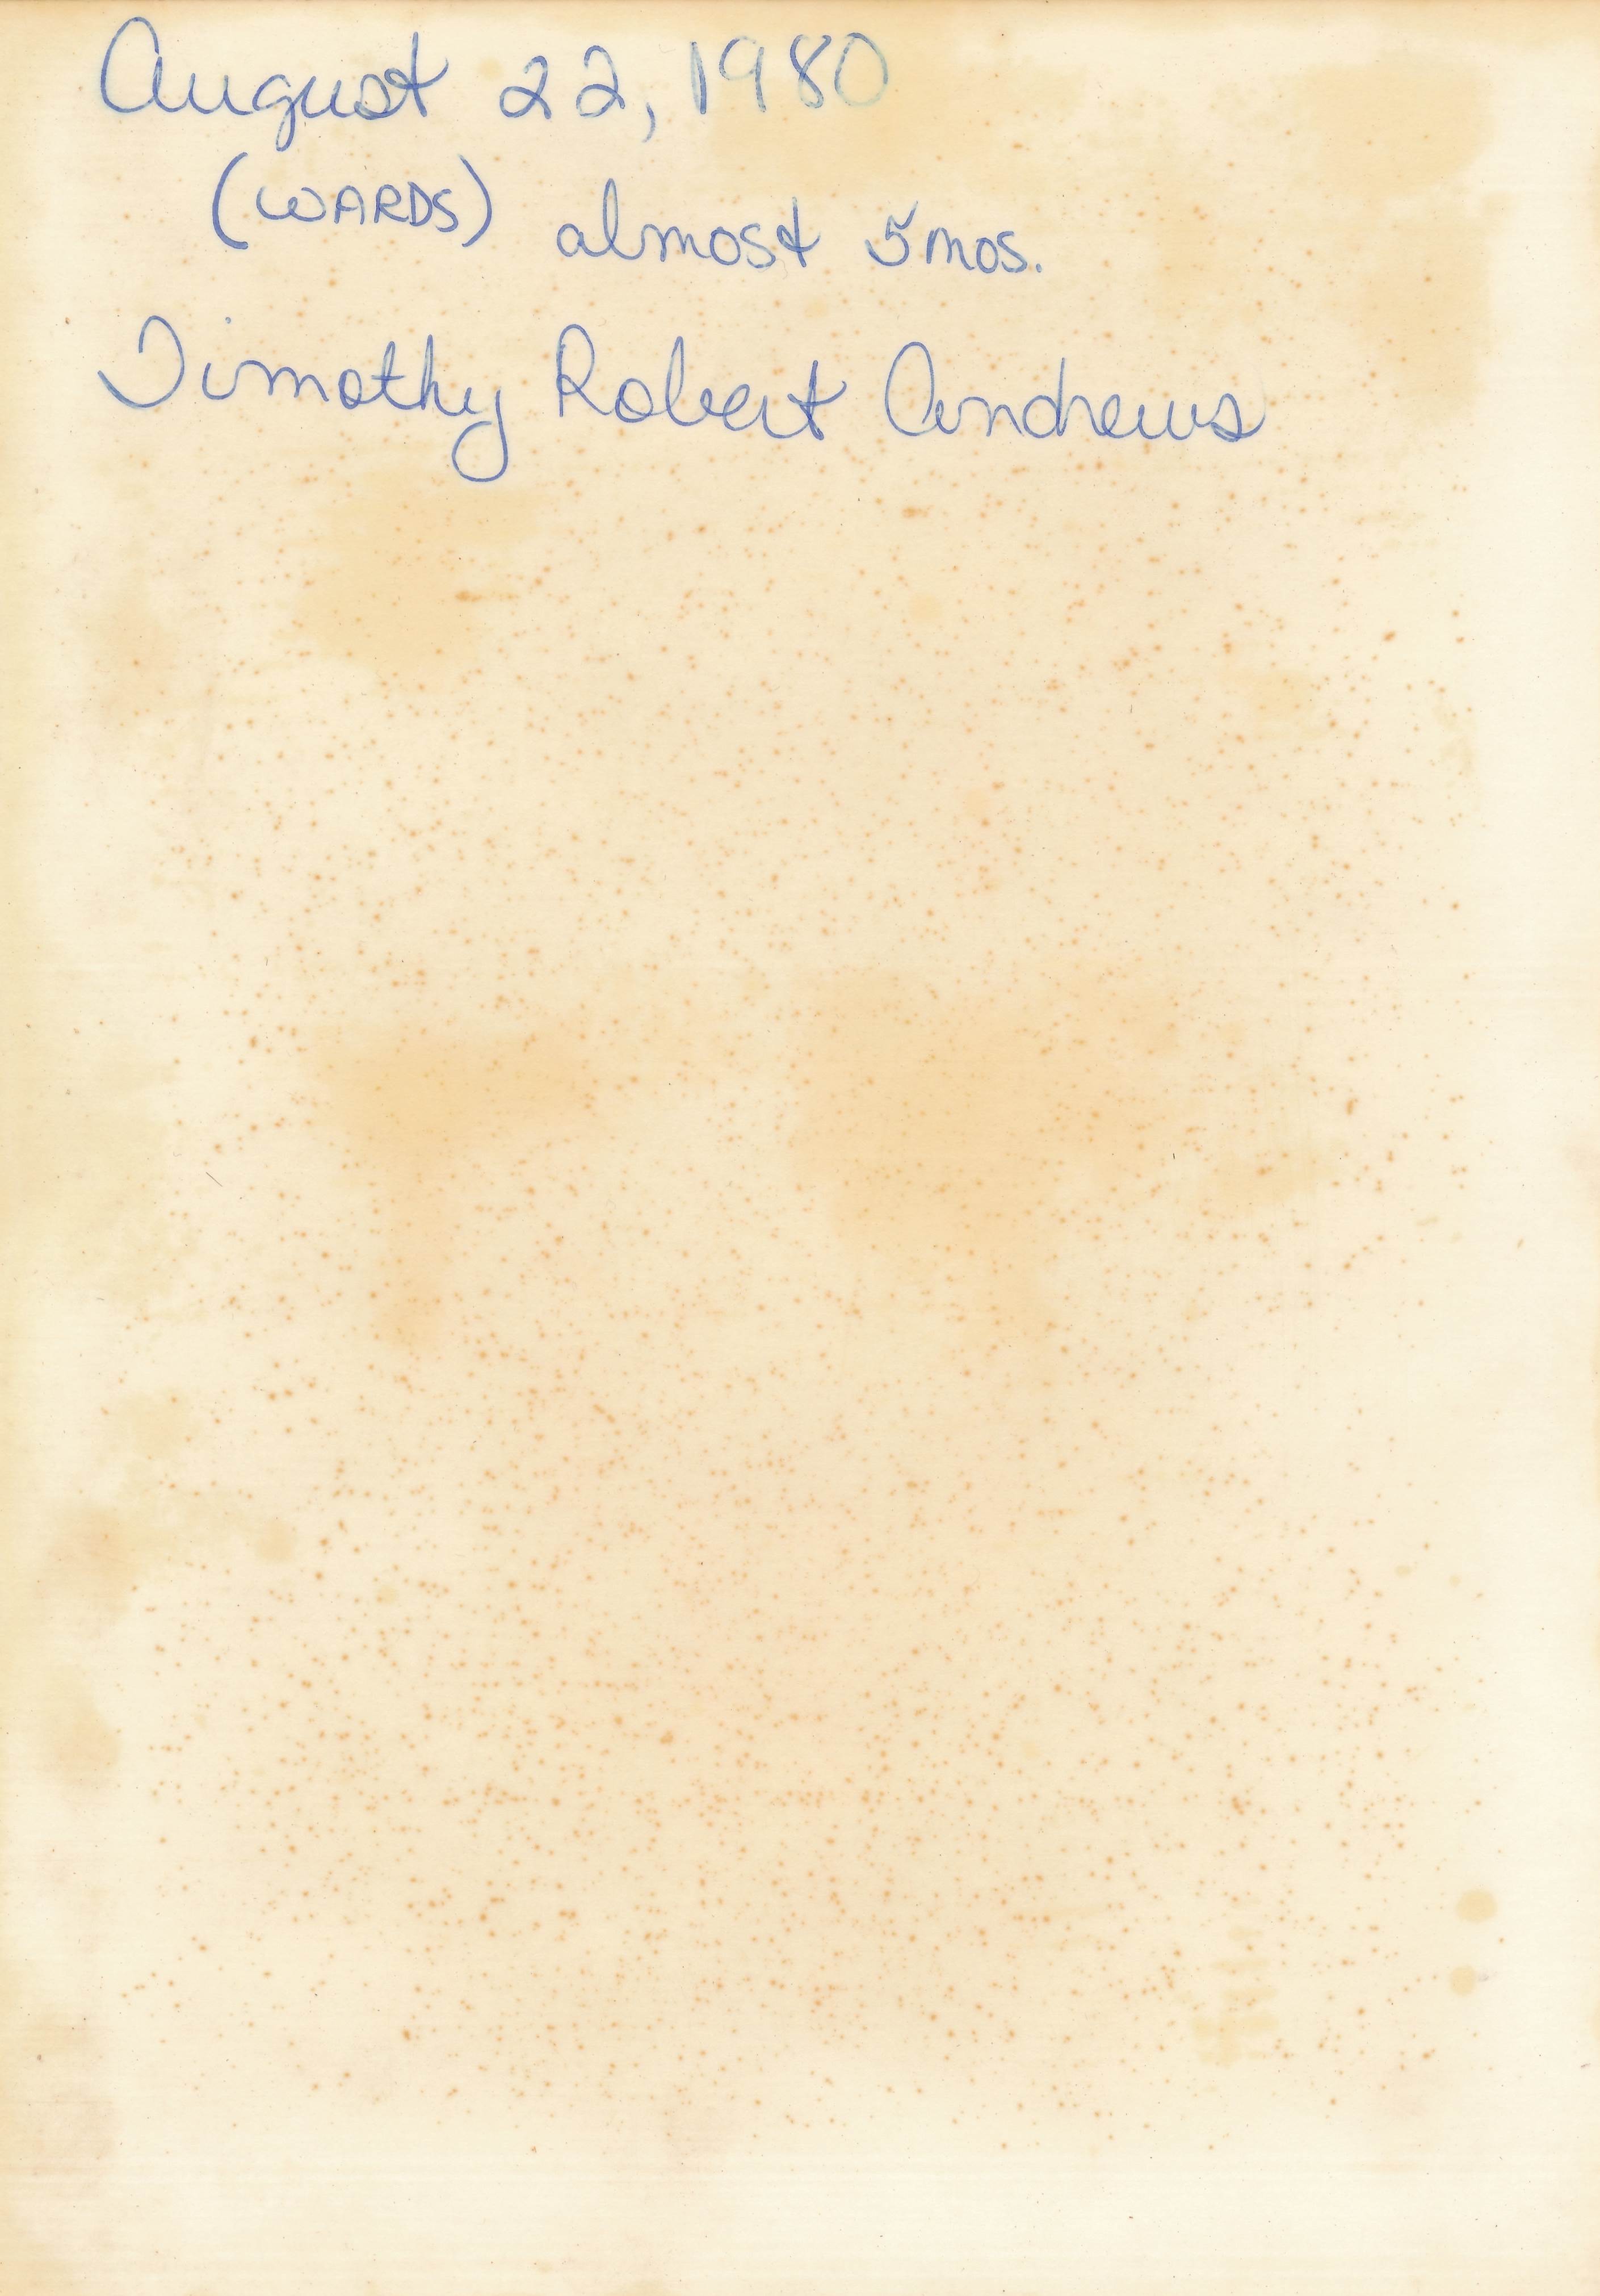 August 22, 1980
(WARDS) almost 5 mos.
Timothy Robert Andrews